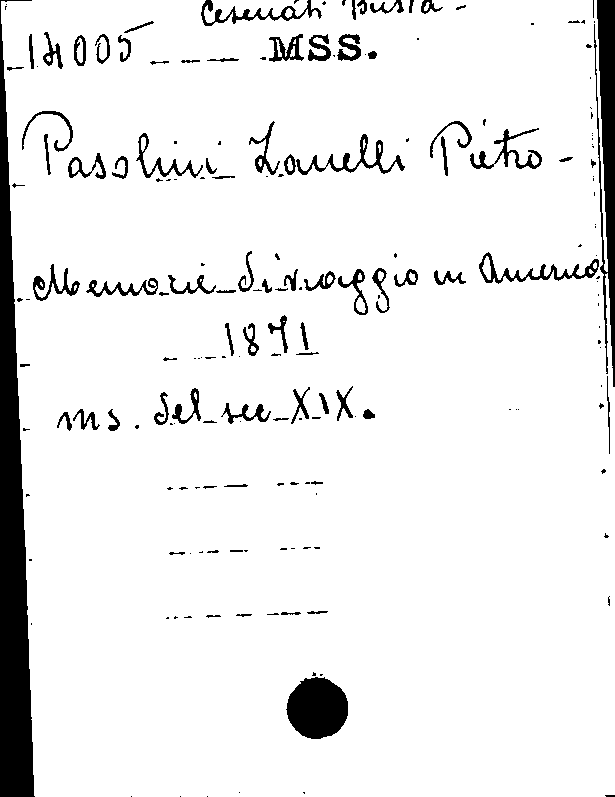 Cesenati Busta -
14005 MSS.
Pasolini Zanelli Pietro -
Memorie di viaggio in America
1871
ms. del sec XIX.